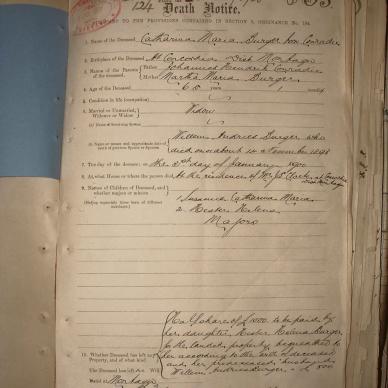 124
Death Notice.
PURSUANT TO THE PROVISIONS CONTAINED IN SECTION 9, ORDINANCE No. 104.
1. Name of the Deceased Catharina Maria Burger born Conradie
2. Birthplace of the Deceased At Concordia Dist Montagu
3. Names of the Parents of the deceased. Father Johannes Conradie
Mother Martha Maria Burger
4. Age of the Deceased 65 years 1 month
5. Condition in life (occupation)
6. Married or Unmarried, Widower or Widow Widow
Willem Andries Burger who
died on or about 14 November 1898
7. The day of the decease; the 3rd day of January 1900
8. At what House or where the person died, At the residence of Mr
9. Names of Children of Deceased, and whether majors or minors
1 Susanna Catharina Maria
2. Hester Helena
Majors
Half share of £1000 to be paid by
her daughter Hester Helena Burger
for the landed property bequeathed to
her according to the will of deceased
and her predeceased husband
Willem Andries Burger £500
10. Whether Deceased has left any Property, and of what kind
The Deceased has left Will
Montagu